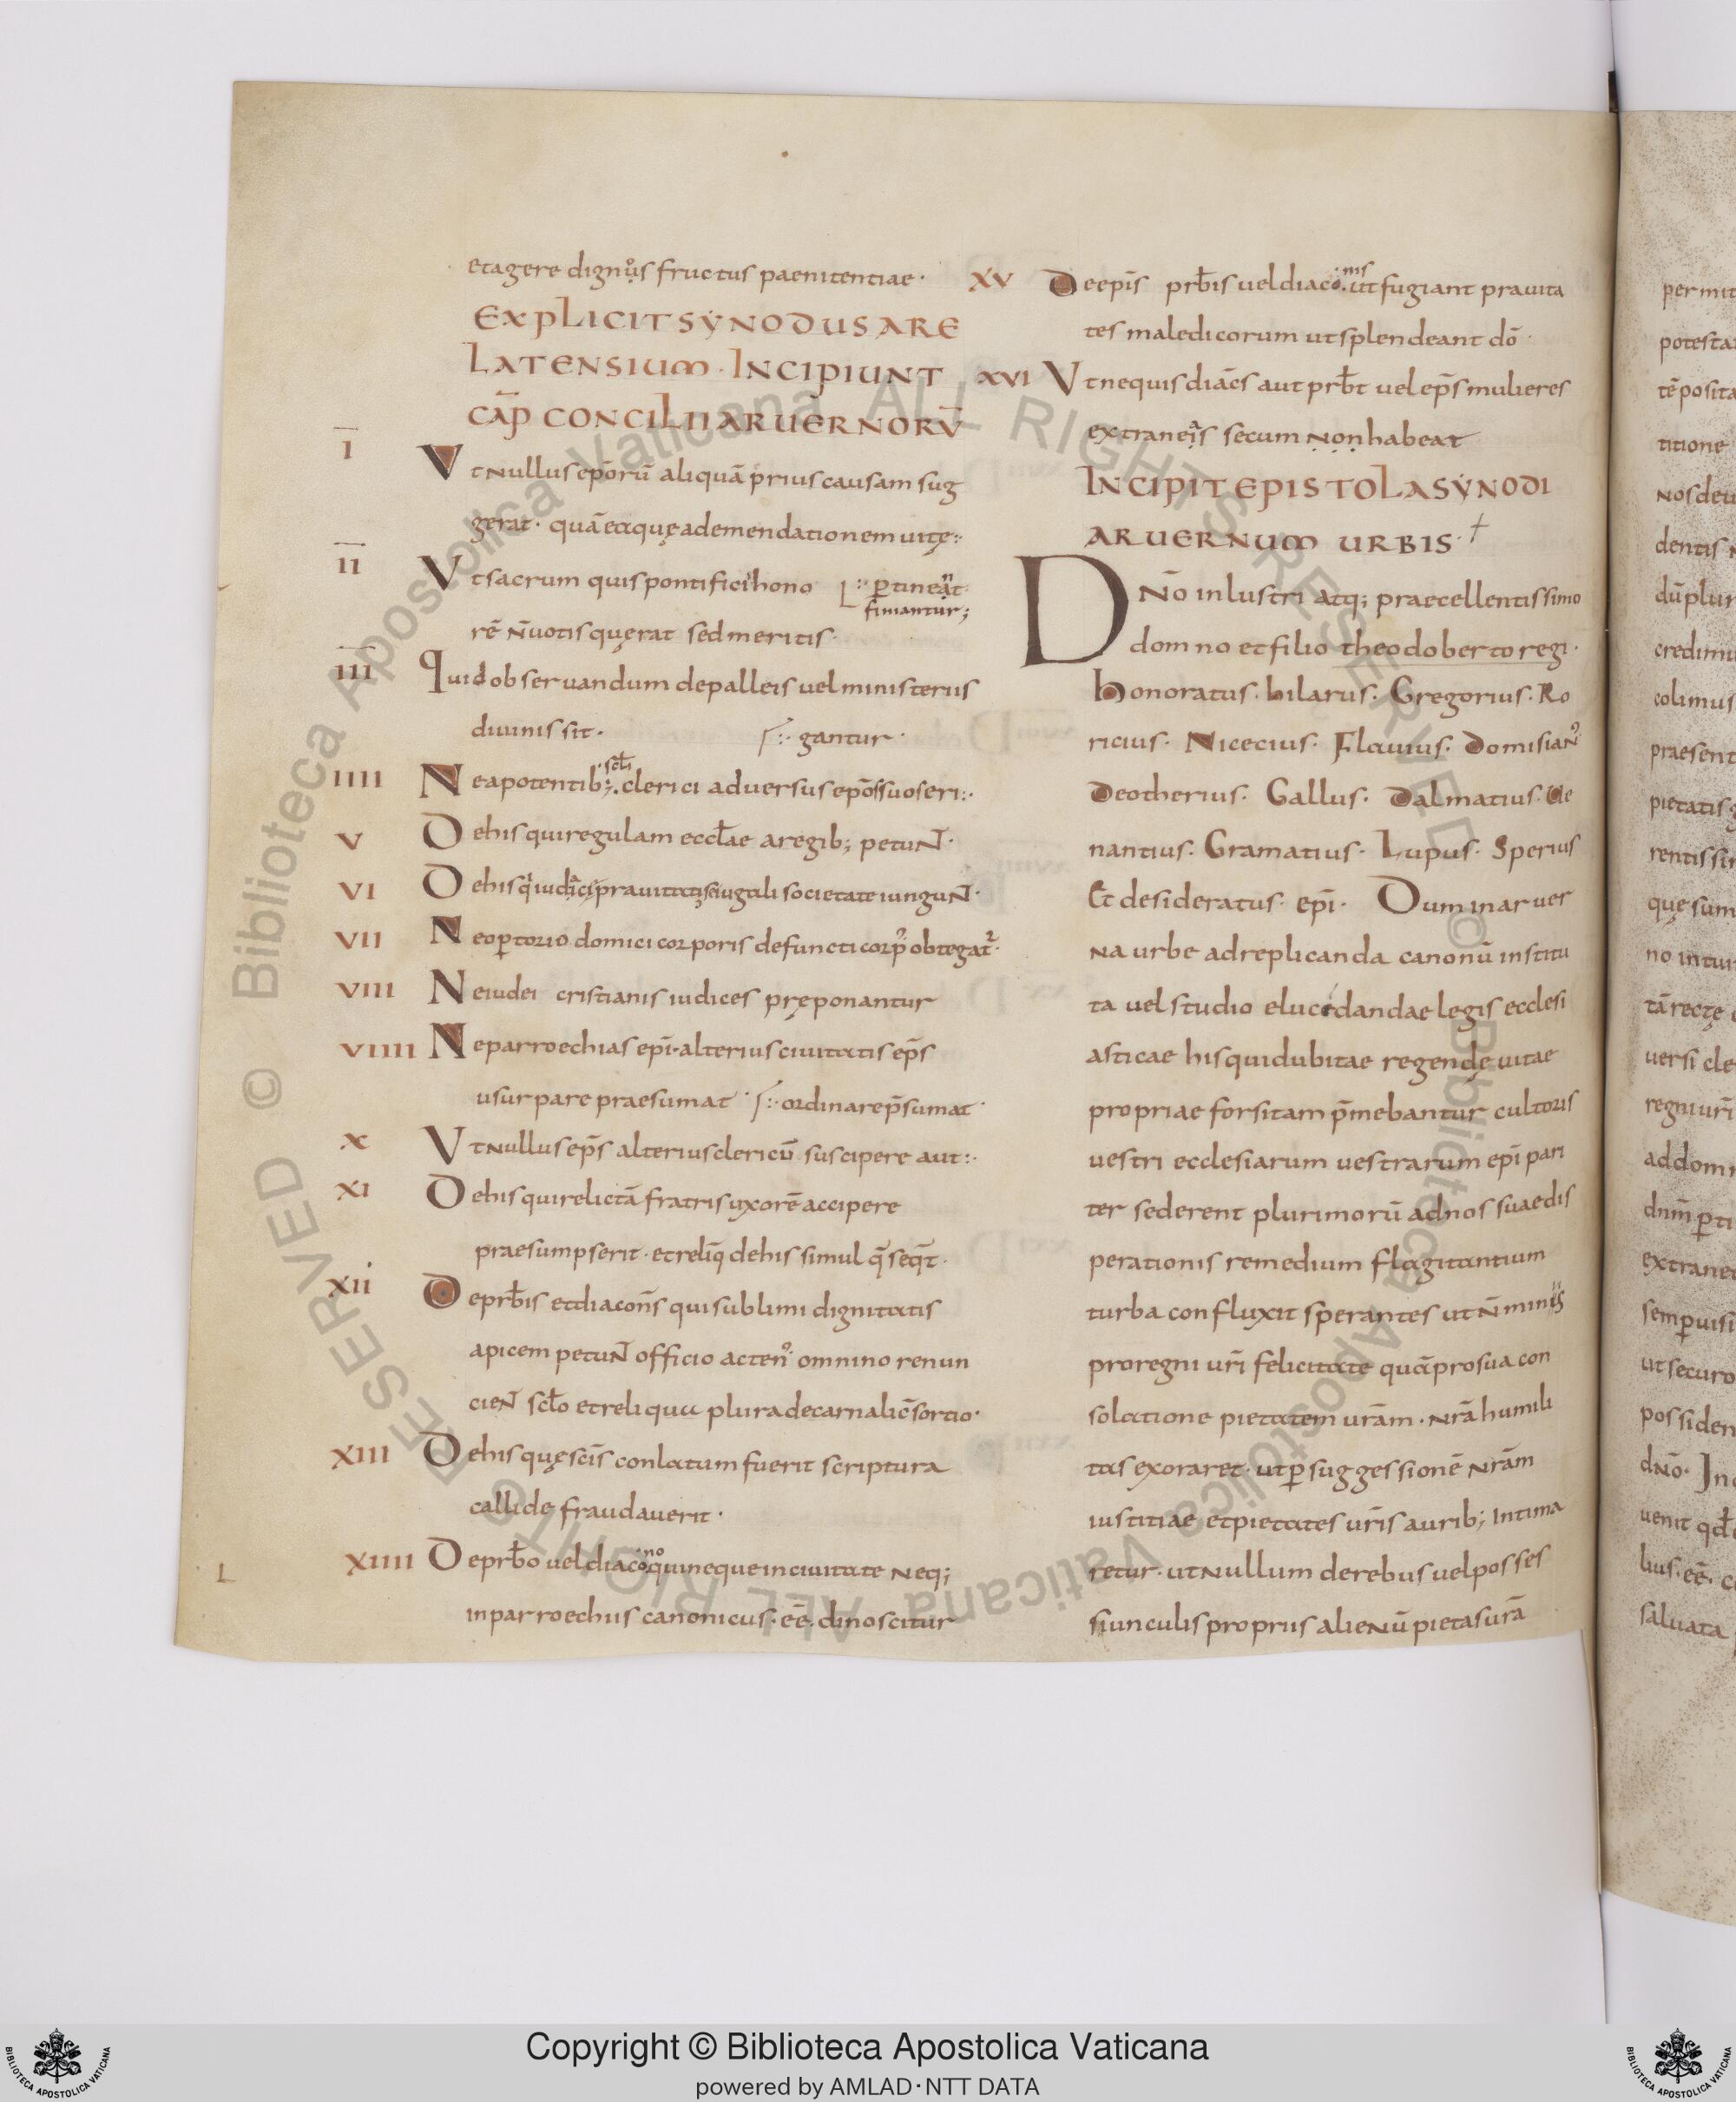 et agere dignus fructus paenitentiae ·
EXPLICIT SYNODUS ARE
LATENSIUM · INCIPIUNT
CAP̄ CONCILII ARUERNORŪ
I Vt nullus ep̄orū aliquā prius causam sug
gerat · quā ea quę ad emendationem uitę :·
II Vt sacrum quis pontificii hono :· ꝑtineant
finiantur;
rē n̄ uotis quęrat sed meritis ·
III Quid obseruandum de palleis uel ministeriis
diuinis sit · :· gantur ·
IIII Ne a potentib; scl̄i clerici aduersus ep̄os suos eri :·
V De his qui regulam eccl̄ae a regib; petun̄t ·
VI De his societate iungun̄t ·
VII Ne opertorio dominici corporis defuncti corp' obtegat' ·
VIII Ne iudei cristianis iudices pręponantur
VIIII Ne parroechias ep̄i · alterius ciuitatis ep̄s
usurpare praesumat · :· ordinare p̄sumat ·
X Vt nullus ep̄s alterius clericū suscipere aut :·
XI De his qui relictā fratris uxorē accipere
praesumpserit · et reliq̄ de his simul q̄ seq̄t ·
XII De prb̄is et diacon̄s qui sublimi dignitatis
apicem petun̄t officio acten' omnino renun
cien̄t scl̄o et reliqua plura de carnali c̄sortio ·
XIII De his quę sc̄is conlatum fuerit scriptura
callide fraudauerit ·
XIIII De prb̄o uel diacono qui neque in ciuitate neq;
in parroechiis canonicus · eē · dinoscitur
L
XV De ep̄is prb̄is uel diaconis ut fugiant prauita
tes maledicorum ut splendeant dō ·
XVI Vt nequis diāc̄s aut prb̄t uel ep̄s mulieres
extraneas secum non habeat
INCIPIT EPISTOLA SYNODI
ARUERNUM URBIS · †
DN̄o inlustri atq; praecellentissimo
domno et filio theodoberto regi ·
honoratus · hilarus · Gregorius · Ro
ricius · Nicecius · Flauius · Domisian'
Deotherius · Gallus · Dalmatius · Ue
nantius · Gramatius · Lupus · Sperius
Et desideratus · ep̄i · Dum in aruer
na urbe ad replicanda canonū institu
ta uel studio elucidandae legis ecclesi
asticae his qui dubitae regendę uitae
propriae forsitam p̄mebantur cultoris
uestri ecclesiarum uestrarum ep̄i pari
ter sederent plurimorū ad nos suae dis
perationis remedium flagitantium
turba confluxit sperantes ut n̄ minus
pro regni ur̄i felicitate quā pro sua con
solatione pietatem ur̄am · nr̄a humili
tas exoraret · ut ꝑ suggessionē nr̄am
iustitiae et pietates ur̄is aurib; intima
retur · ut nullum de rebus uel posses
siunculis propriis alienū pietas ur̄a
permit
potesta
tē posita
titione
nos deu
dentis
dū plur
credimu
colimus
praesent
pietatis
rentissi
quę sum
no intui
tā rectę
uersi cle
regni ur̄i
ad dom
dnm̄ ꝑti
extranei
semꝑ uisi
ut securo
possiden
dn̄o · In
uenit qd̄
lius · eē · c
saluata
© Biblioteca Apostolica Vaticana ALL RIGHTS RESERVED © Biblioteca Apostolica Vaticana ALL RIGHTS RESERVED
Copyright © Biblioteca Apostolica Vaticana
powered by AMLAD·NTT DATA
BIBLIOTECA APOSTOLICA VATICANA
BIBLIOTECA APOSTOLICA VATICANA